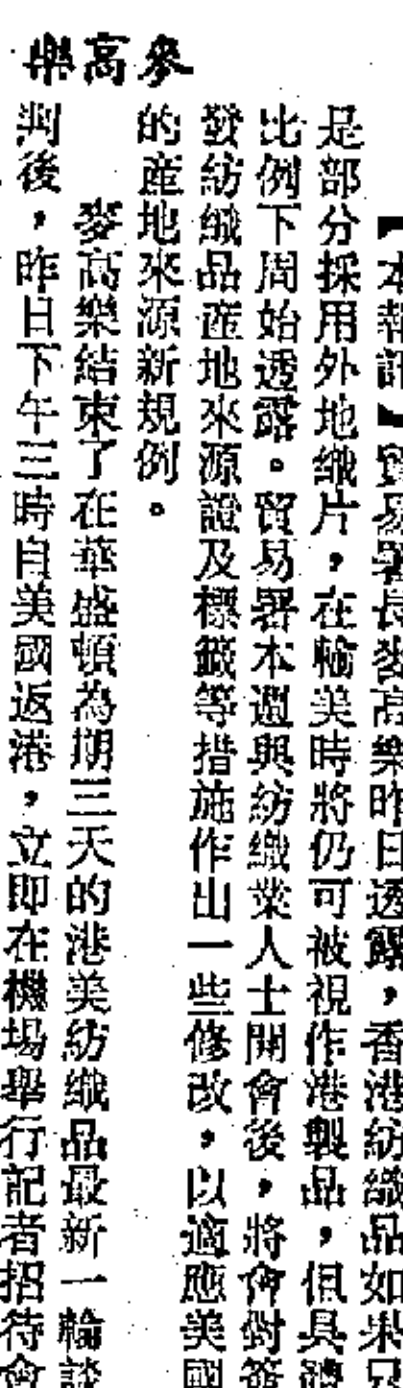 麥高樂
【本報訊】貿易署長麥高樂昨日透露，香港紡織品如果只
是部分採用外地織片，在輸美時將仍可被視作港製品，但具體
比例下周始透露。貿易署本週與紡織業人士開會後，將會對簽
發紡織品產地來源證及標籤等措施作出一些修改，以適應美國
的產地來源新規例。
麥高樂結束了在華盛頓為期三天的港美紡織品最新一輪談
判後，昨日下午三時自美國返港，立即在機場舉行記者招待會